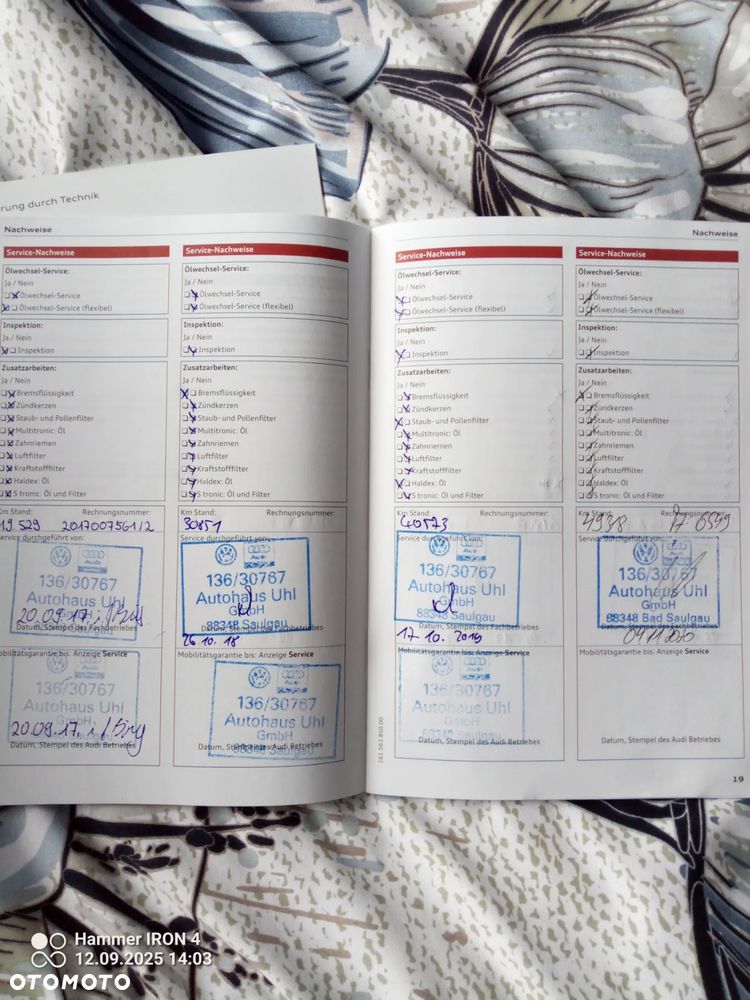 rung durch Technik
Nachweise
Service-Nachweise
Ölwechsel-Service:
Ja / Nein
Ölwechsel-Service
Ölwechsel-Service (flexibel)
Inspektion:
Ja / Nein
Inspektion
Zusatzarbeiten:
Ja / Nein
Bremsflüssigkeit
Zündkerzen
Staub- und Pollenfilter
Multitronic: Öl
Zahnriemen
Luftfilter
Kraftstofffilter
Haldex: Öl
S tronic: Öl und Filter
Km Stand: Rechnungsnummer:
19.529 2017007561/2
Service durchgeführt von:
136/30767
Autohaus Uhl
GmbH
20.09.17
Datum, Stempel des Fachbetriebes
Mobilitätsgarantie bis: Anzeige Service
136/30767
Autohaus Uhl
GmbH
20.09.17
Datum, Stempel des Audi Betriebes
Service-Nachweise
Ölwechsel-Service:
Ja / Nein
Ölwechsel-Service
Ölwechsel-Service (flexibel)
Inspektion:
Ja / Nein
Inspektion
Zusatzarbeiten:
Ja / Nein
Bremsflüssigkeit
Zündkerzen
Staub- und Pollenfilter
Multitronic: Öl
Zahnriemen
Luftfilter
Kraftstofffilter
Haldex: Öl
S tronic: Öl und Filter
Km Stand: Rechnungsnummer:
30851
Service durchgeführt von:
136/30767
Autohaus Uhl
GmbH
88348 Saulgau
Datum, Stempel des Fachbetriebes
26.10.18
Mobilitätsgarantie bis: Anzeige Service
136/30767
Autohaus Uhl
GmbH
88348 Saulgau
Datum, Stempel des Audi Betriebes
Nachweise
Service-Nachweise
Ölwechsel-Service:
Ja / Nein
Ölwechsel-Service
Ölwechsel-Service (flexibel)
Inspektion:
Ja / Nein
Inspektion
Zusatzarbeiten:
Ja / Nein
Bremsflüssigkeit
Zündkerzen
Staub- und Pollenfilter
Multitronic: Öl
Zahnriemen
Luftfilter
Kraftstofffilter
Haldex: Öl
S tronic: Öl und Filter
Km Stand: Rechnungsnummer:
40573
Service durchgeführt von:
136/30767
Autohaus Uhl
GmbH
88348 Saulgau
Datum, Stempel des Fachbetriebes
17.10.2019
Mobilitätsgarantie bis: Anzeige Service
136/30767
Autohaus Uhl
GmbH
88348 Saulgau
Datum, Stempel des Audi Betriebes
161.563.850.00
Service-Nachweise
Ölwechsel-Service:
Ja / Nein
Ölwechsel-Service
Ölwechsel-Service (flexibel)
Inspektion:
Ja / Nein
Inspektion
Zusatzarbeiten:
Ja / Nein
Bremsflüssigkeit
Zündkerzen
Staub- und Pollenfilter
Multitronic: Öl
Zahnriemen
Luftfilter
Kraftstofffilter
Haldex: Öl
S tronic: Öl und Filter
Km Stand: Rechnungsnummer:
Service durchgeführt von:
136/30767
Autohaus Uhl
GmbH
88348 Bad Saulgau
Datum, Stempel des Fachbetriebes
Mobilitätsgarantie bis: Anzeige Service
Datum, Stempel des Audi Betriebes
19
Hammer IRON 4
12.09.2025 14:03
OTOMOTO